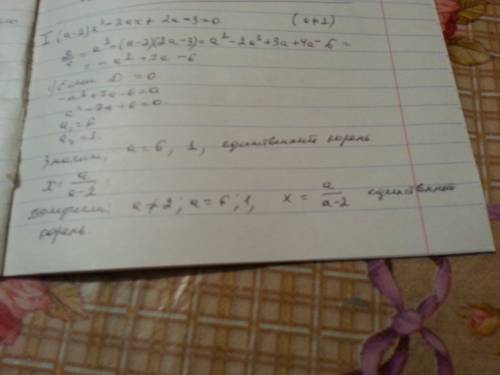 I (a-2)x² - 2ax + 2a - 3 = 0. (a≠2)
D/4 = a² - (a-2)(2a-3) = a² - 2a² + 3a + 4a - 6 =
= -a² + 7a - 6
1) Если D = 0
-a² + 7a - 6 = 0
a² - 7a + 6 = 0.
a₁ = 6
a₂ = 1.
Значит: a = 6; 1, единственный корень.
x = a/(a-2).
a ≠ 2; a = 6; 1, x = a/(a-2) единственный
корень.